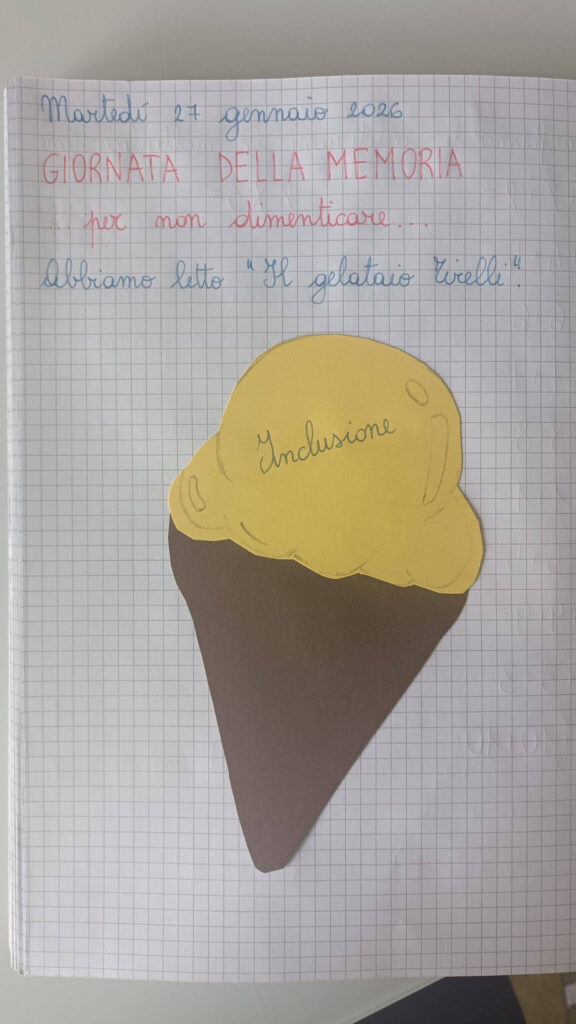 Martedí 27 gennaio 2026
GIORNATA DELLA MEMORIA
...per non dimenticare...
Abbiamo letto "Il gelataio Tirelli".
Inclusione